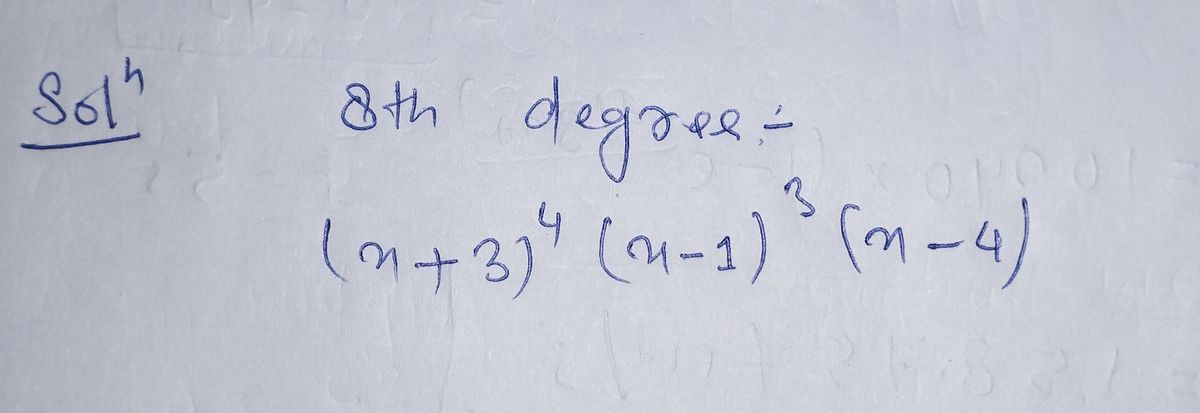 Solⁿ 8th degree:-
(x+3)⁴ (x-1)³ (x-4)